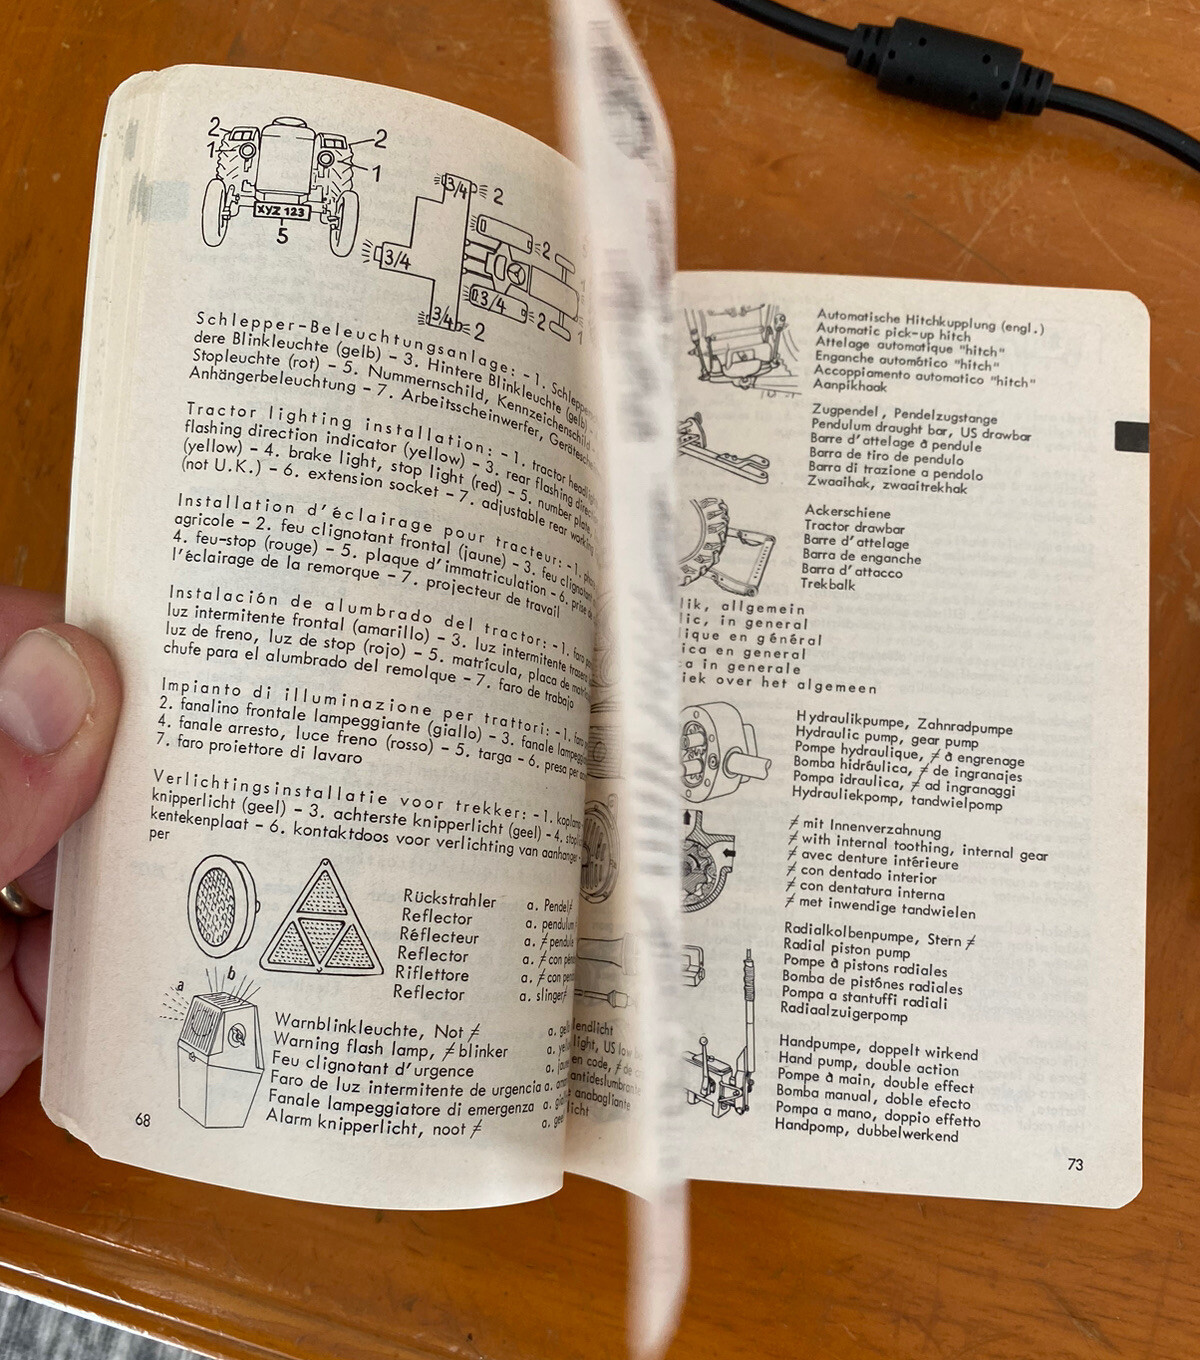 2
1
2
1
XYZ 123
5
3/4
2
3/4
2
3/4
2
3/4
2
1
Schlepper-Beleuchtungsanlage: - 1.
dere Blinkleuchte (gelb) - 3. Hintere Blinkleuchte (gelb)
Stopleuchte (rot) - 5. Nummernschild, Kennzeichenschild
Anhängerbeleuchtung - 7. Arbeitsscheinwerfer,
Tractor lighting installation: - 1. tractor
flashing direction indicator (yellow) - 3. rear flashing
(yellow) - 4. brake light, stop light (red) - 5. number plate,
(not U.K.) - 6. extension socket - 7. adjustable rear working
Installation d'éclairage pour tracteur: - 1.
agricole - 2. feu clignotant frontal (jaune) - 3. feu
4. feu-stop (rouge) - 5. plaque d'immatriculation - 6. prise
l'éclairage de la remorque - 7. projecteur de travail
Instalación de alumbrado del tractor: - 1. faro
luz intermitente frontal (amarillo) - 3. luz intermitente
luz de freno, luz de stop (rojo) - 5. matrícula, placa de
chufe para el alumbrado del remolque - 7. faro de trabajo
Impianto di illuminazione per trattori: - 1.
2. fanalino frontale lampeggiante (giallo) - 3. fanale
4. fanale arresto, luce freno (rosso) - 5. targa - 6. presa per
7. faro proiettore di lavaro
Verlichtingsinstallatie voor trekker: - 1.
knipperlicht (geel) - 3. achterste knipperlicht (geel) - 4.
kentekenplaat - 6. kontaktdoos voor verlichting van aanhanger
per
Rückstrahler a. Pendel≠
Reflector a. pendulum
Réflecteur a. ≠ pendule
Reflector a. ≠ con
Riflettore a. ≠ con
Reflector a. slinger≠
a
b
Warnblinkleuchte, Not ≠ a.
Warning flash lamp, ≠ blinker a.
Feu clignotant d'urgence a.
Faro de luz intermitente de urgencia a.
Fanale lampeggiatore di emergenza a.
Alarm knipperlicht, noot ≠ a.
68
endlicht
light, US low
en code, ≠ de
antideslumbrante
anabagliante
licht
Automatische Hitchkupplung (engl.)
Automatic pick-up hitch
Attelage automatique "hitch"
Enganche automático "hitch"
Accoppiamento automatico "hitch"
Aanpikhaak
Zugpendel, Pendelzugstange
Pendulum draught bar, US drawbar
Barre d'attelage à pendule
Barra de tiro de pendulo
Barra di trazione a pendolo
Zwaaihak, zwaaitrekhak
Ackerschiene
Tractor drawbar
Barre d'attelage
Barra de enganche
Barra d'attacco
Trekbalk
lik, allgemein
lic, in general
lique en général
ica en general
a in generale
iek over het algemeen
Hydraulikpumpe, Zahnradpumpe
Hydraulic pump, gear pump
Pompe hydraulique, ≠ à engrenage
Bomba hidráulica, ≠ de ingranajes
Pompa idraulica, ≠ ad ingranaggi
Hydrauliekpomp, tandwielpomp
≠ mit Innenverzahnung
≠ with internal toothing, internal gear
≠ avec denture intérieure
≠ con dentado interior
≠ con dentatura interna
≠ met inwendige tandwielen
Radialkolbenpumpe, Stern ≠
Radial piston pump
Pompe à pistons radiales
Bomba de pistónes radiales
Pompa a stantuffi radiali
Radiaalzuigerpomp
Handpumpe, doppelt wirkend
Hand pump, double action
Pompe à main, double effect
Bomba manual, doble efecto
Pompa a mano, doppio effetto
Handpomp, dubbelwerkend
73